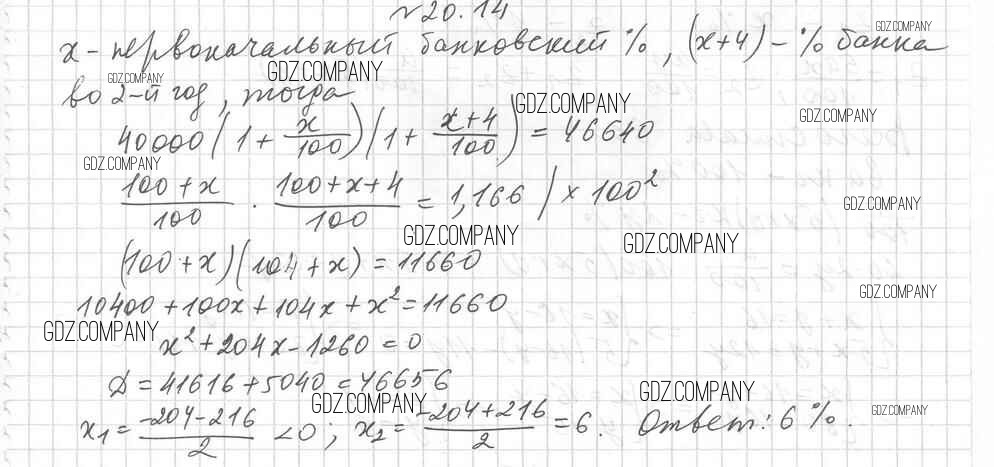 №20.14
x - первоначальный банковский %, (x+4) - % банка
во 2-й год, тогда
40000(1 + x/100)(1 + x+4/100) = 46640
100+x/100 · 100+x+4/100 = 1,166 / × 100²
(100+x)(104+x) = 11660
10400+100x+104x+x² = 11660
x²+204x-1260=0
D = 41616+5040 = 46656
x₁ = -204-216/2 <0; x₂ = -204+216/2 = 6. Ответ: 6%.
GDZ.COMPANY
GDZ.COMPANY
GDZ.COMPANY
GDZ.COMPANY
GDZ.COMPANY
GDZ.COMPANY
GDZ.COMPANY
GDZ.COMPANY
GDZ.COMPANY
GDZ.COMPANY
GDZ.COMPANY
GDZ.COMPANY
GDZ.COMPANY
GDZ.COMPANY